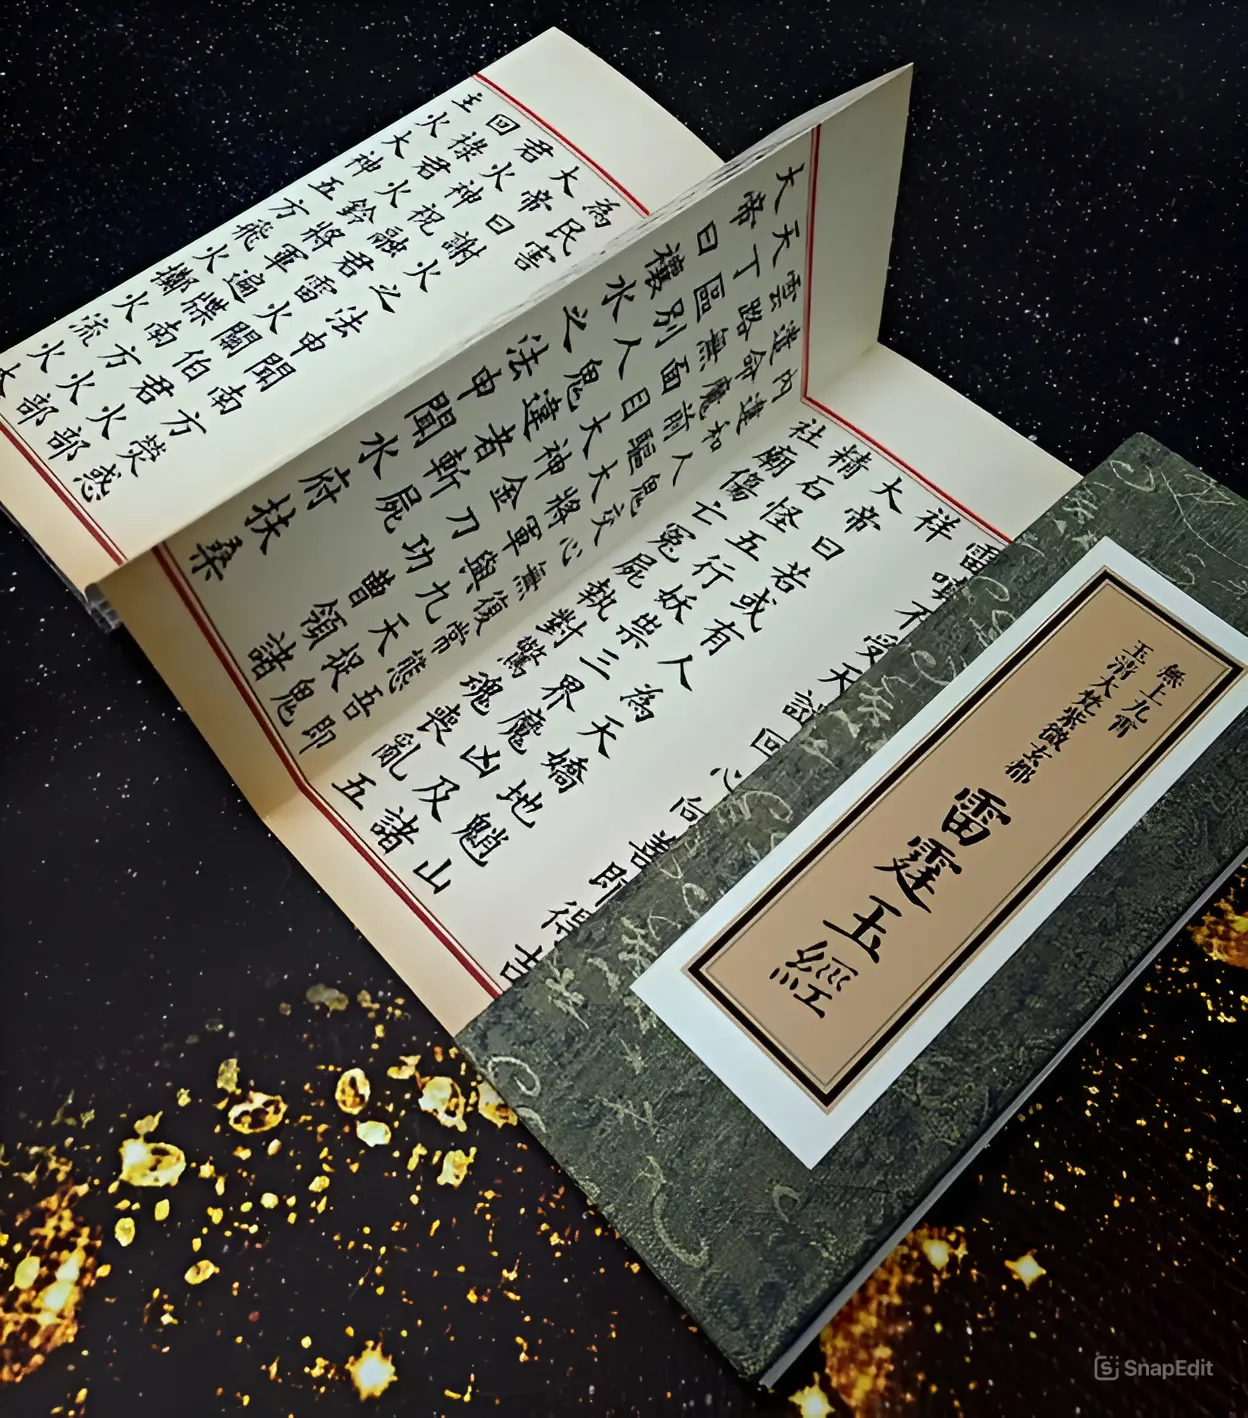 無上九霄
玉清大梵紫微玄都
雷霆玉經
雷嗔不受天誅回心向善即得吉
祥
大帝曰若或有人為天嬌地魈山
精石怪五行妖祟三界魔凶及諸
社廟傷亡冤屍執對驚魂喪亂五
內違和人鬼交心無復常態吾即
遣命魔前驅大將軍與九天捉鬼
雲路無面目大神金刀功曹領諸
天丁區別人鬼違者斬屍
大帝曰禳水之法申聞水府扶桑
為民害
大帝曰謝火之法申聞南方熒惑
君火神祝融君雷火閼伯君火部
回祿君火鈴將軍遍牒南方火部
主火大神五方飛火擲火流火大
SnapEdit